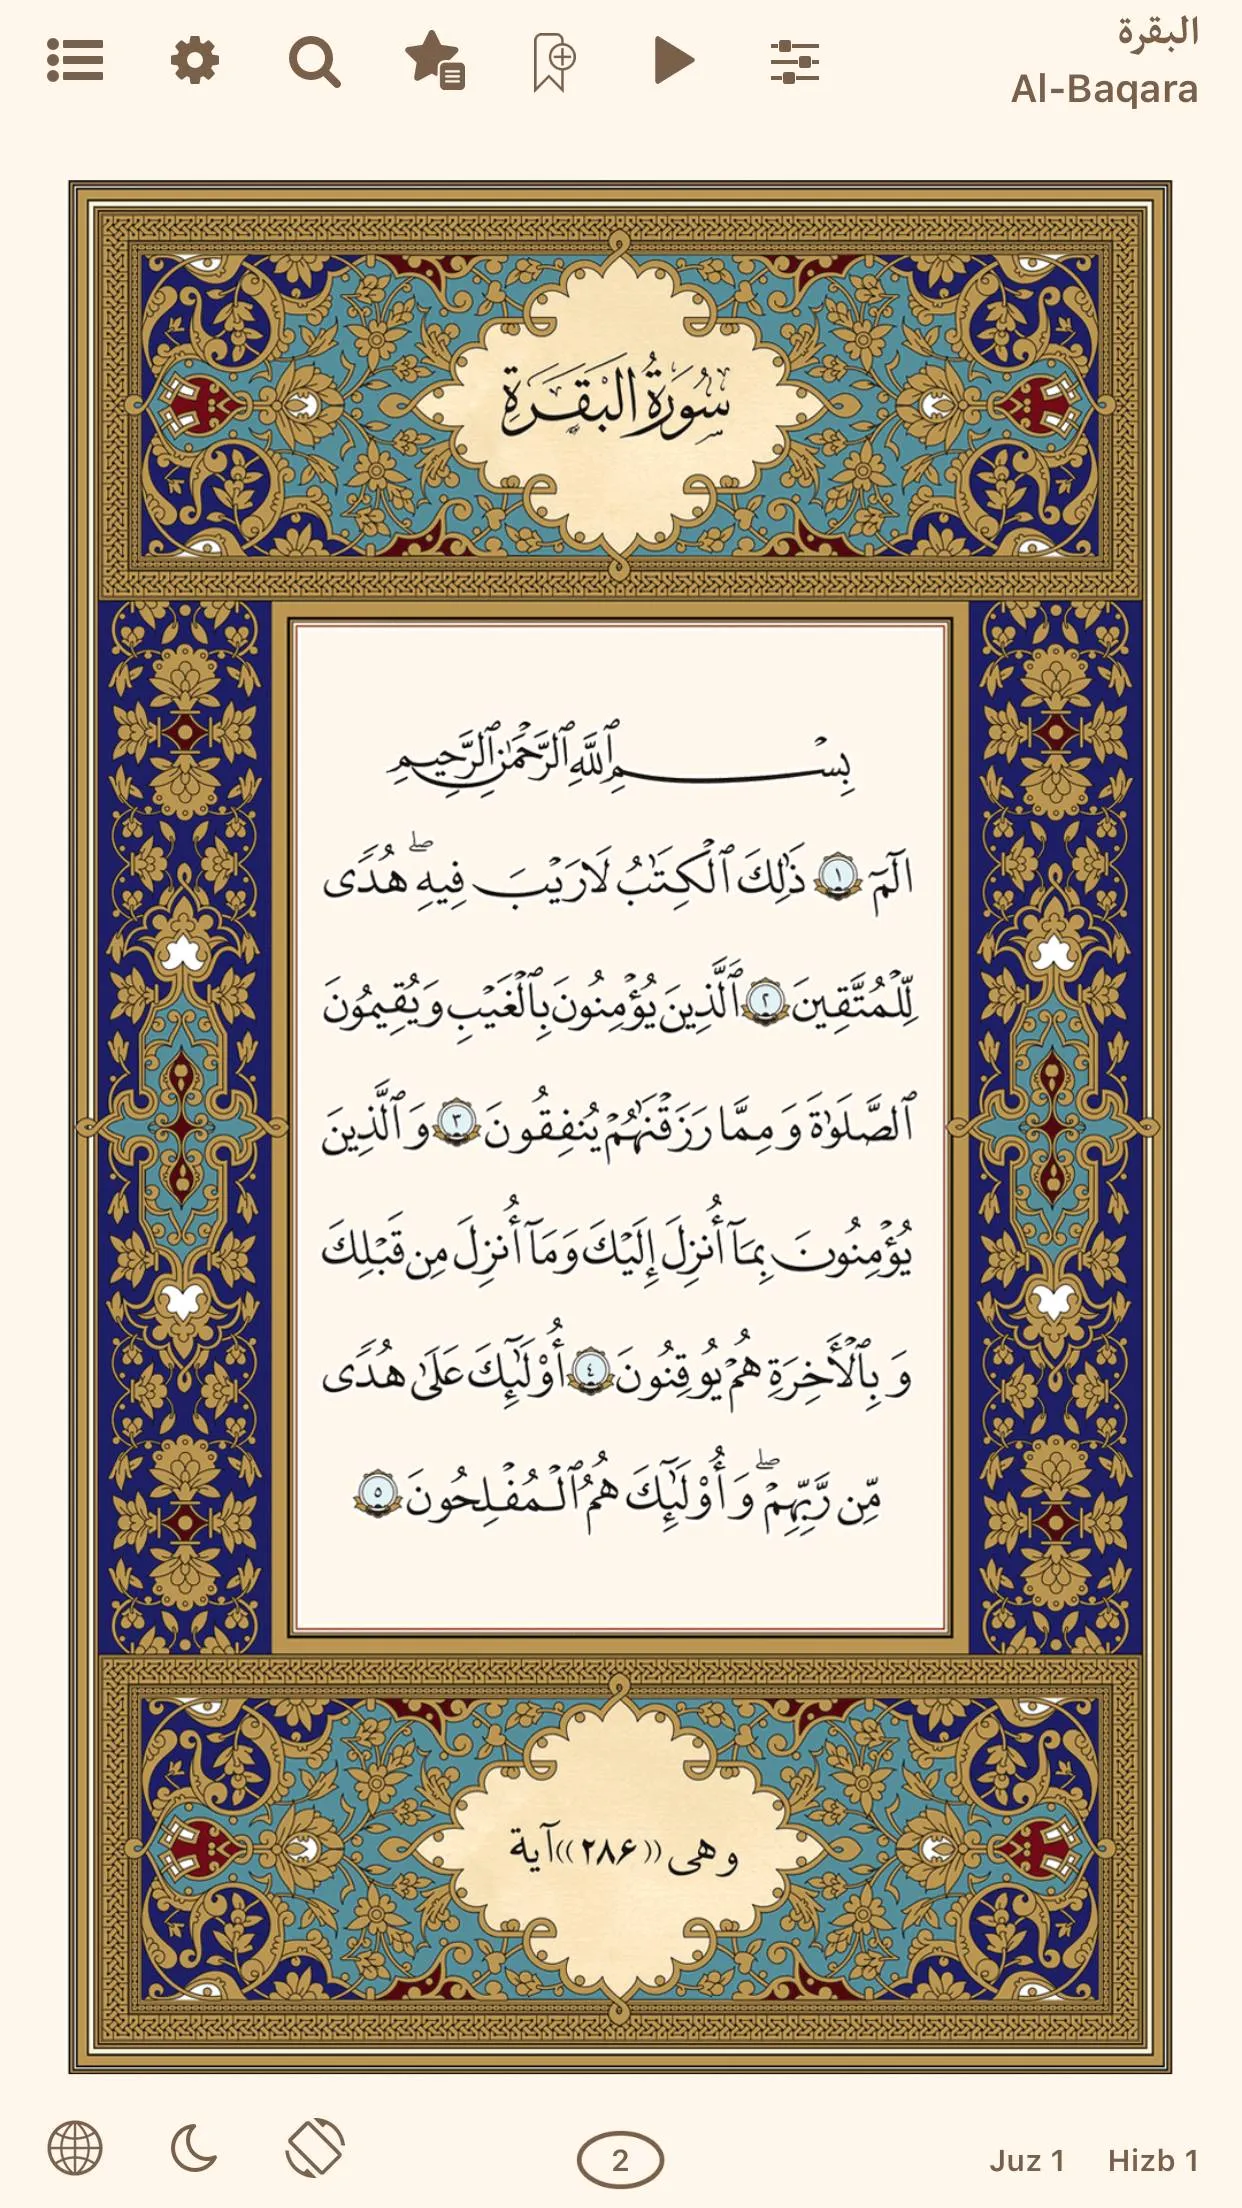 البقرة
Al-Baqara
سُورَةُ الْبَقَرَةِ
بِسْمِ ٱللَّهِ ٱلرَّحْمَٰنِ ٱلرَّحِيمِ
الٓمٓ ١ ذَٰلِكَ ٱلْكِتَٰبُ لَا رَيْبَ فِيهِ ۖ هُدًى
لِّلْمُتَّقِينَ ٢ ٱلَّذِينَ يُؤْمِنُونَ بِٱلْغَيْبِ وَيُقِيمُونَ
ٱلصَّلَوٰةَ وَمِمَّا رَزَقْنَٰهُمْ يُنفِقُونَ ٣ وَٱلَّذِينَ
يُؤْمِنُونَ بِمَآ أُنزِلَ إِلَيْكَ وَمَآ أُنزِلَ مِن قَبْلِكَ
وَبِٱلْأَخِرَةِ هُمْ يُوقِنُونَ ٤ أُوْلَٰٓئِكَ عَلَىٰ هُدًى
مِّن رَّبِّهِمْ ۖ وَأُوْلَٰٓئِكَ هُمُ ٱلْمُفْلِحُونَ ٥
وهی ((۲۸۶)) آية
2
Juz 1 Hizb 1